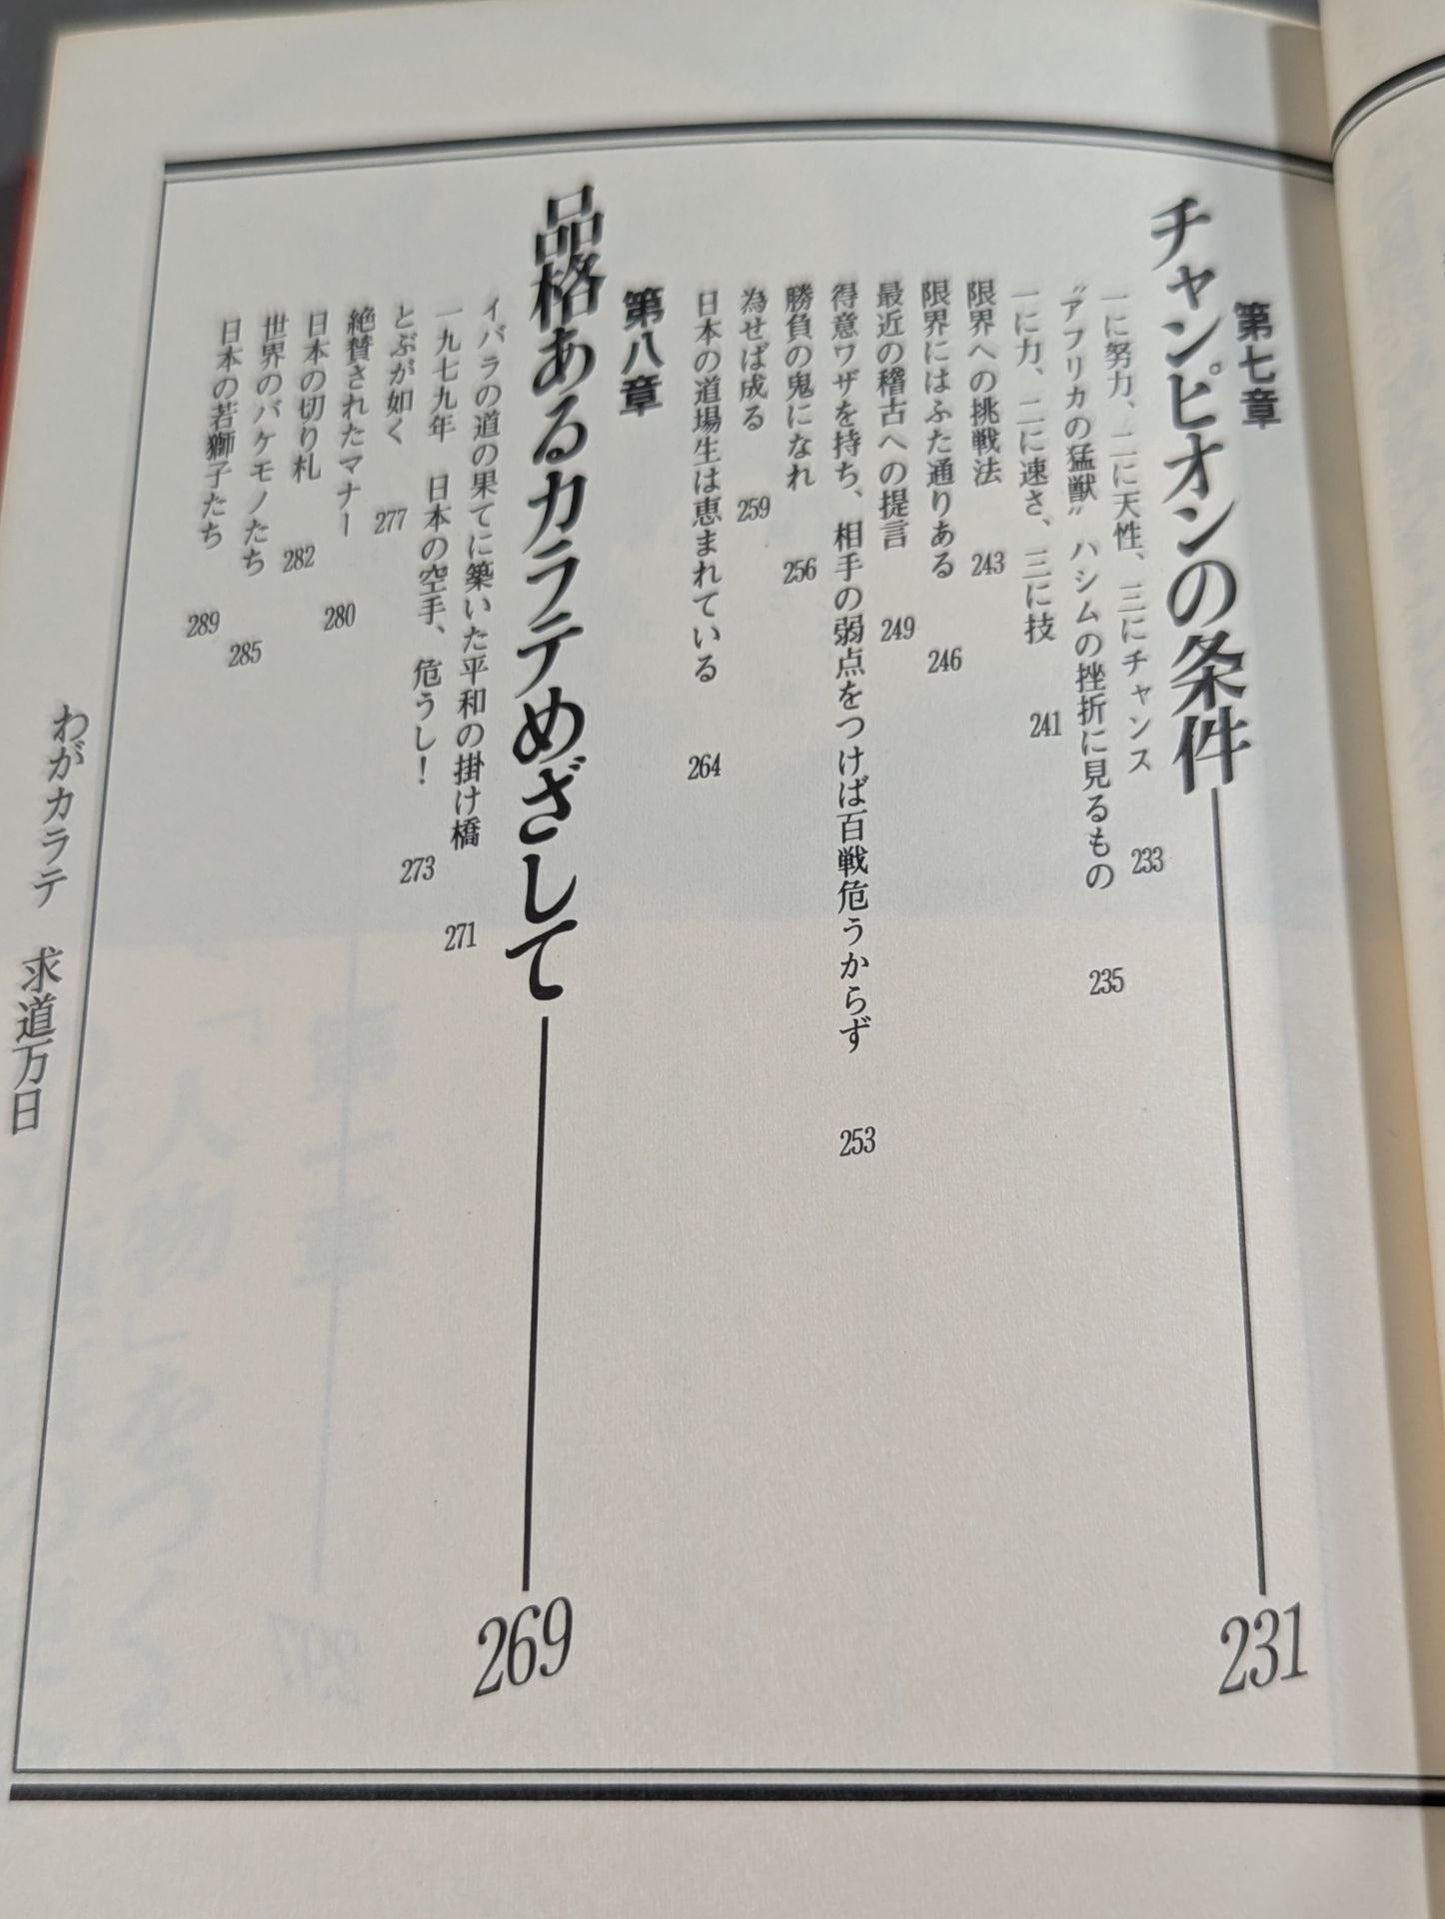 第七章
チャンピオンの条件 231
一に努力、二に天性、三にチャンス 233
〝アフリカの猛獣〟ハシムの挫折に見るもの 235
一に力、二に速さ、三に技 241
限界への挑戦法 243
限界にはふた通りある 246
最近の稽古への提言 249
得意ワザを持ち、相手の弱点をつけば百戦危うからず 253
勝負の鬼になれ 256
為せば成る 259
日本の道場生は恵まれている 264
第八章
品格あるカラテめざして 269
イバラの道の果てに築いた平和の掛け橋 271
一九七九年 日本の空手、危うし! 273
とぶが如く 277
絶賛されたマナー 280
日本の切り札 282
世界のバケモノたち 285
日本の若獅子たち 289
わがカラテ 求道万日